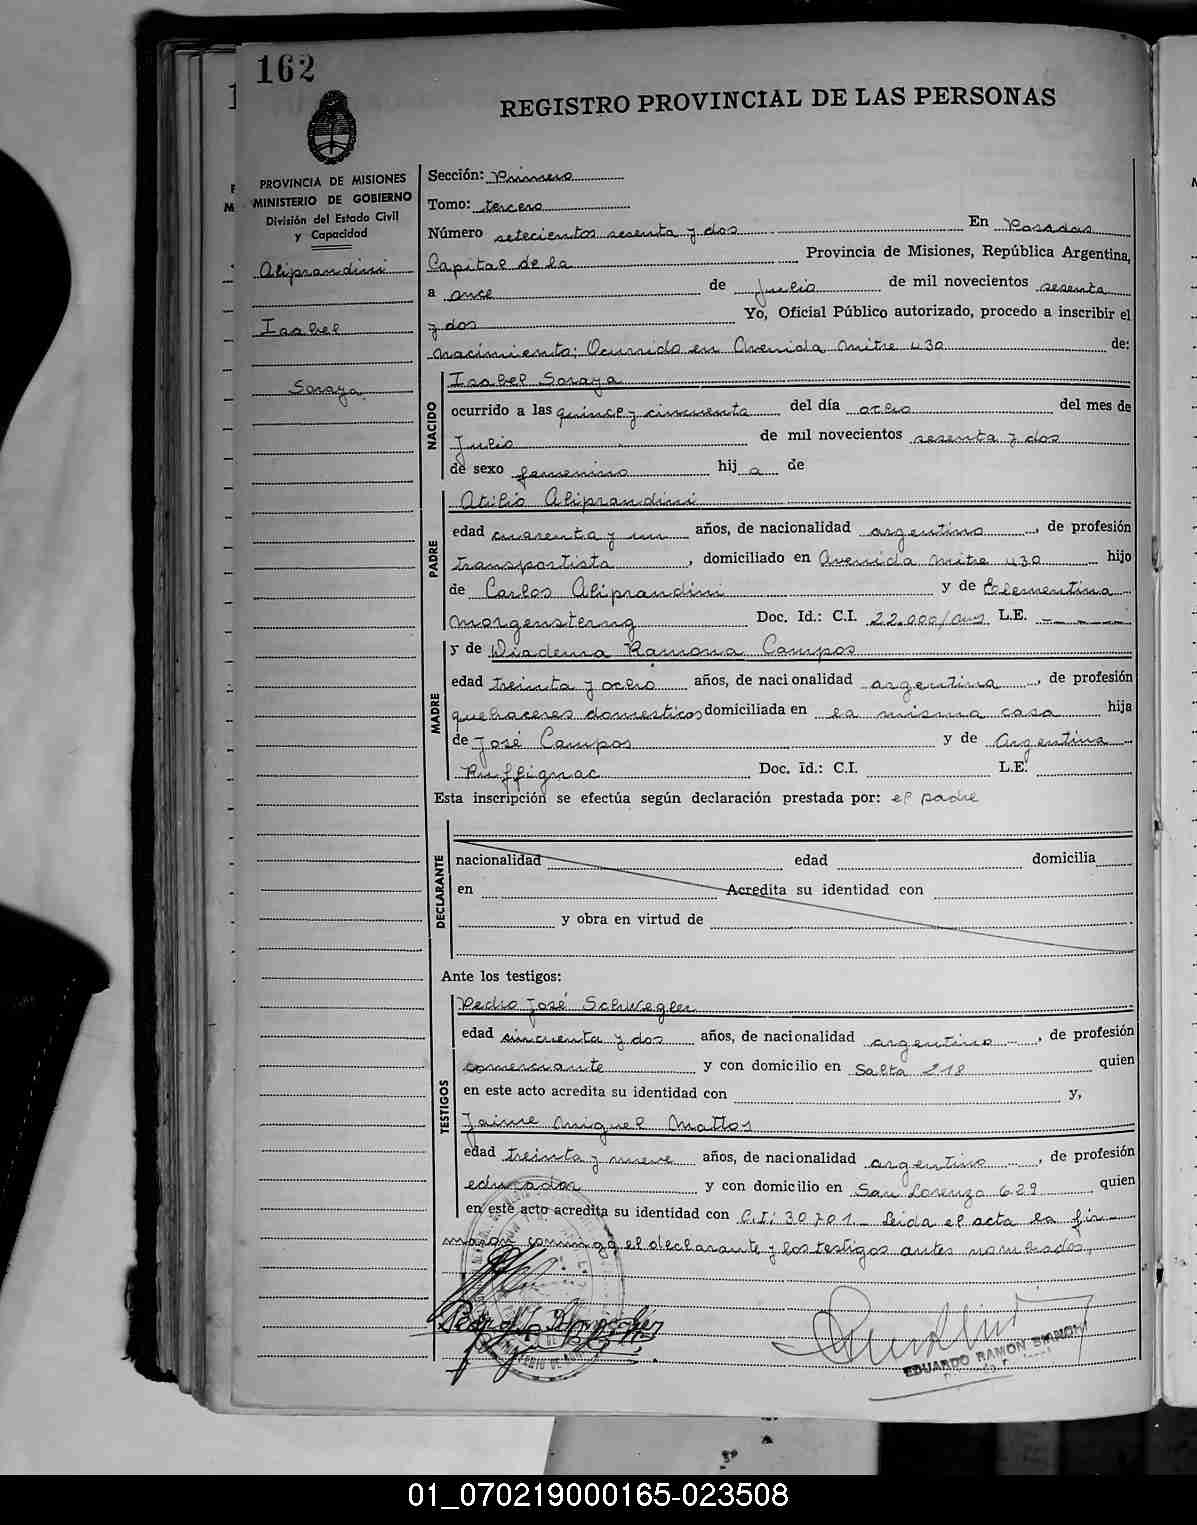 162
REGISTRO PROVINCIAL DE LAS PERSONAS
PROVINCIA DE MISIONES
MINISTERIO DE GOBIERNO
División del Estado Civil
y Capacidad
Aliprandini
Isabel
Soraya
Sección: Primera
Tomo: tercero
Número setecientos sesenta y dos En Posadas
Capital de la Provincia de Misiones, República Argentina,
a once de Julio de mil novecientos sesenta
y dos Yo, Oficial Público autorizado, procedo a inscribir el
nacimiento: Ocurrido en Avenida Mitre 430 de:
NACIDO
Isabel Soraya
ocurrido a las quince y cincuenta del día ocho del mes de
Julio de mil novecientos sesenta y dos
de sexo femenino hij a de
PADRE
Atilio Aliprandini
edad cuarenta y un años, de nacionalidad argentino, de profesión
transportista, domiciliado en Avenida Mitre 430 hijo
de Carlos Aliprandini y de Clementina
Morgensterng Doc. Id.: C.I. 22.000/ L.E.
MADRE
y de Diadema Ramona Campos
edad treinta y ocho años, de nacionalidad argentina, de profesión
quehaceres domesticos domiciliada en la misma casa hija
de José Campos y de Argentina
Ruffignac Doc. Id.: C.I. L.E.
Esta inscripción se efectúa según declaración prestada por: el padre
DECLARANTE
nacionalidad edad domicilia
en Acredita su identidad con
y obra en virtud de
Ante los testigos:
TESTIGOS
Pedro José Schwegler
edad sincuenta y dos años, de nacionalidad argentino, de profesión
comerciante y con domicilio en Salta 218 quien
en este acto acredita su identidad con y,
Jaime Miguel Mattos
edad treinta y nueve años, de nacionalidad argentino, de profesión
educador y con domicilio en San Lorenzo 629 quien
en este acto acredita su identidad con C.I: 30701.- Leida el acta la fir-
maron conmigo el declarante y los testigos antes nombrados.
EDUARDO RAMON
01_070219000165-023508